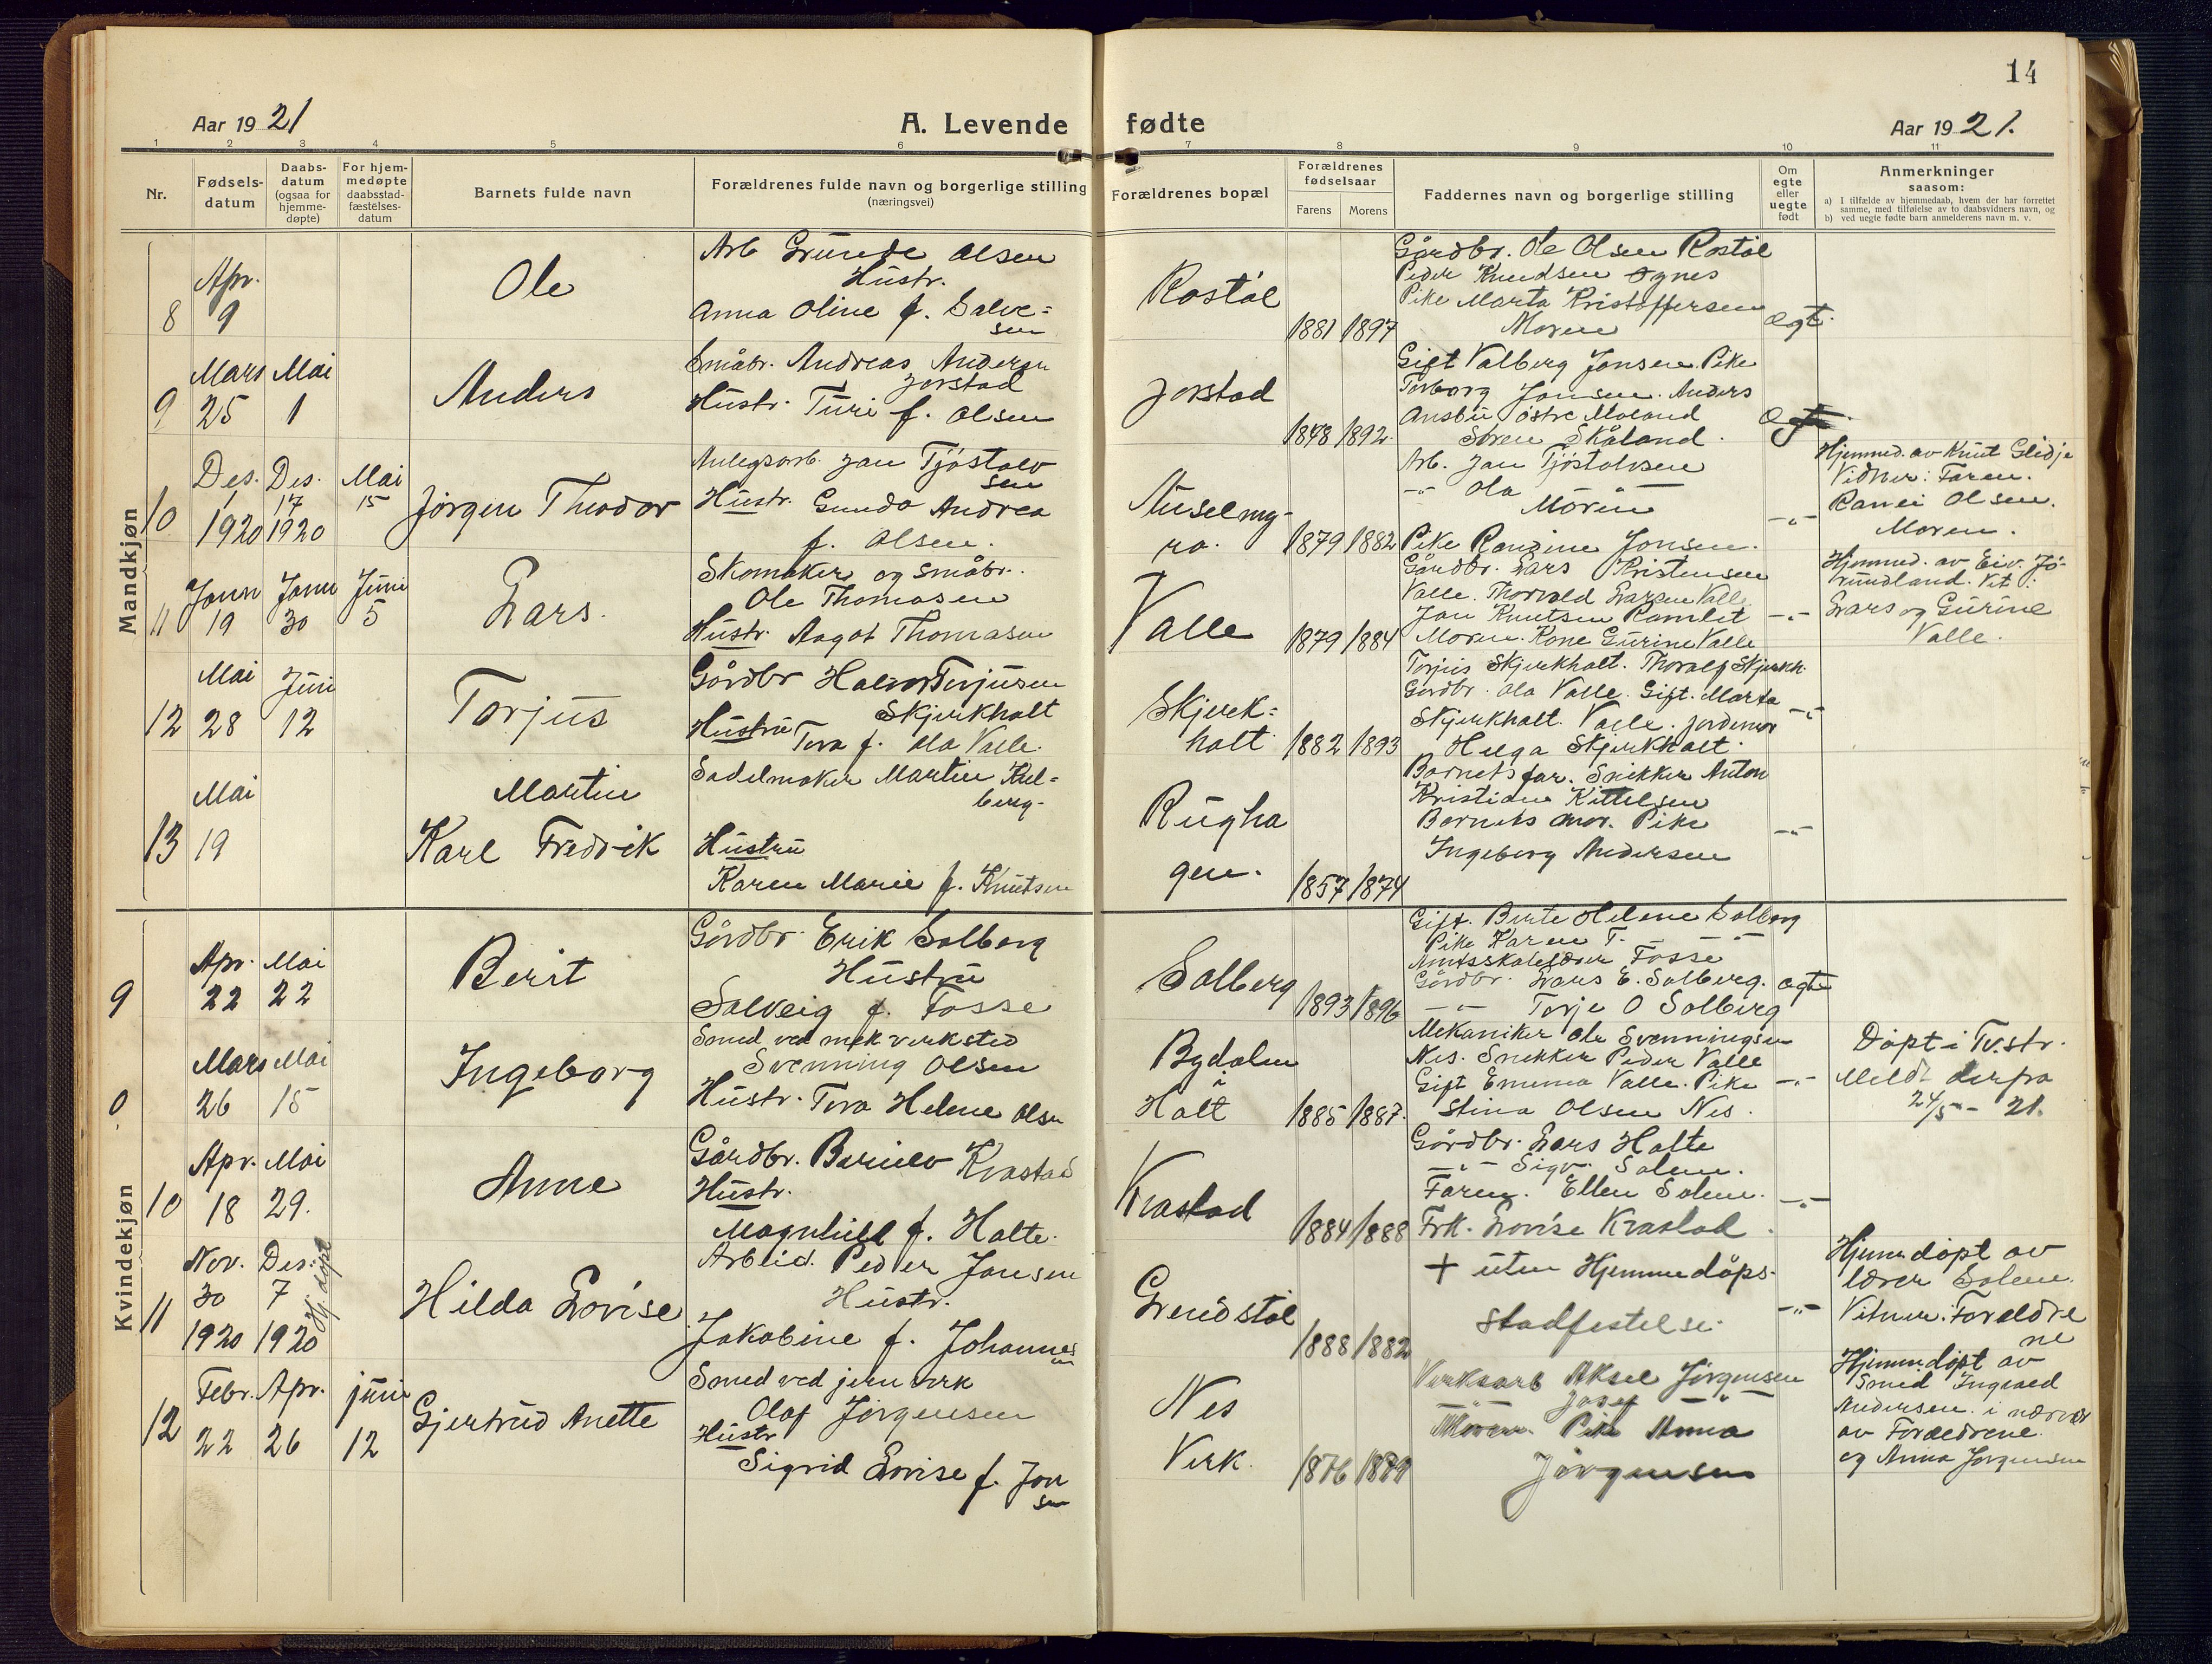 14
Aar 1921
A. Levende fødte
Aar 1921.
1 2 3 4 5 6 7 8 9 10 11
Nr.
Fødsels-
datum
Daabs-
datum
(ogsaa for
hjemme-
døpte)
For hjem-
medøpte
daabsstad-
fæstelses-
datum
Barnets fulde navn
Forældrenes fulde navn og borgerlige stilling
(næringsvei)
Forældrenes bopæl
Forældrenes
fødselsaar
Farens
Morens
Faddernes navn og borgerlige stilling
Om
egte
eller
uegte
født
Anmerkninger
saasom:
a) I tilfælde av hjemmedaab, hvem der har forrettet
samme, med tilføielse av to daabsvidners navn, og
b) ved uegte fødte barn anmelderens navn m. v.
Mandkjøn
8
Apr.
9
Ole
Arb Grunde Olsen
Hustr.
Anna Oline f. Salve=
sen
Rostøl
1881 1897
Gårdbr. Ole Olsen Rostøl
Peder Knudsen Ognes
Pike Marta Kristoffersen
Moren
egt.
9
Mars
25
Mai
1
Anders
Småbr. Andreas Andersen
Jorstad
Hustr. Turi f. Olsen
Jorstad
1878 1892.
Gift Valberg Jonsen. Pike
Torborg Jonsen. Anders
Ansbu østre Moland
Søren Skåland.
egt.
10
Des.
1
1920
Des.
17
1920
Mai
15
Jørgen Theodor
Anlegsarb. Jan Tjøstolv
sen
Hustr. Gunda Andrea
f. Olsen.
Auselmy-
ra.
1879 1882
Arb. Jan Tjøstolvsen
-"- Ola
Moren
Pike Ranzine Jonsen.
-"-
Hjemmed. av Knut Glidje
Vidner: Faren.
Ranei Olsen.
Moren.
11
Janu
19
Janu
30
Juni
5
Lars.
Skomaker og småbr.
Ole Thomasen
Hustr. Aagot Thomasen
Valle
1879 1884
Gårdbr. Lars Kristensen
Valle. Thorvald Larsen Valle
Jan Knutsen Ramlet
Moren. Kone Gurine Valle
-"-
Hjemmed. av Eiv. Jø-
rundland. Vit.:
Lars og Gurine
Valle.
12
Mai
28
Juni
12
Torjus
Gårdbr Halvor Torjusen
Skjerkholt
Hustru Tora f. Ola Valle.
Skjerk=
holt
1882 1893
Torjus Skjerkholt. Thoralf Skjerkh.
Gårdbr. Ola Valle. Gift. Marta
Skjerkholt. Valle. jordmor
Helga Skjerkholt.
-"-
13
Mai
19
Martin
Karl Fredrik
Sadelmaker Martin Kul=
berg-
Hustru
Karen Marie f. Knutsen
Rugha
gen.
1857 1874
Barnets far. Snekker Anton
Kristian Kittelsen
Barnets mor. Pike
Ingeborg Andersen
-"-
Kvindekjøn
9
Apr.
22
Mai
22
Berit
Gårdbr. Erik Solberg
Hustru
Solveig f. Fosse
Solberg
1893 1896
Gift. Berte Helene Solberg
Pike Karen T. - - -"-
Amtsskolelærer Fosse
Gårdbr. Lars E. Solberg.
-"- Torje O Solberg
egte
0
Mars
26
Mai
15
Ingeborg
Smed ved mek verksted
Svenning Olsen
Hustr. Tora Helene Olsen
Bydalen
i
Holt
1885 1887.
Mekaniker Ole Svenningsen
Nes. Snekker Peder Valle
Gift Emma Valle. Pike
Stina Olsen Nes.
-"-
Døpt i Tv.str.
Meldt derfra
24/5 - 21.
10
Apr.
18
Mai
29.
Anne
Gårdbr. Bernilv Kvastad
Hustr.
Magnhild f. Holte.
Kvastad
1884 1888
Gårdbr. Lars Holte
-"- Sigv. Solem.
Faren. Ellen Solem.
Frk. Lovise Kvastad.
-"-
11
Nov.
30
1920
Des.
7
1920
Hj. døpt
Hilda Lovise
Arbeid. Peder Jansen
Hustr.
Jakobine f. Johannes
en
Grendstøl
1888 1882
+ uten Hjemmedåps-
stadfestelse.
-"-
Hjemmedøpt av
lærer Solem.
Vitner: Foreldre
ne
12
Febr.
22
Apr.
26
juni
12
Gjertrud Anette
Smed ved jernverk
Olaf Jørgensen
Hustr
Sigrid Lovise f. Jon
sen
Nes
Verk.
1876 1879
Verksarb Aksel Jørgensen
-"- Josef -"-
Moren. Pike Anna
Jørgensen
Hjemmedøpt av
Smed Ingvald
Andersen i nærvær
av Forældrene
og Anna Jørgensen